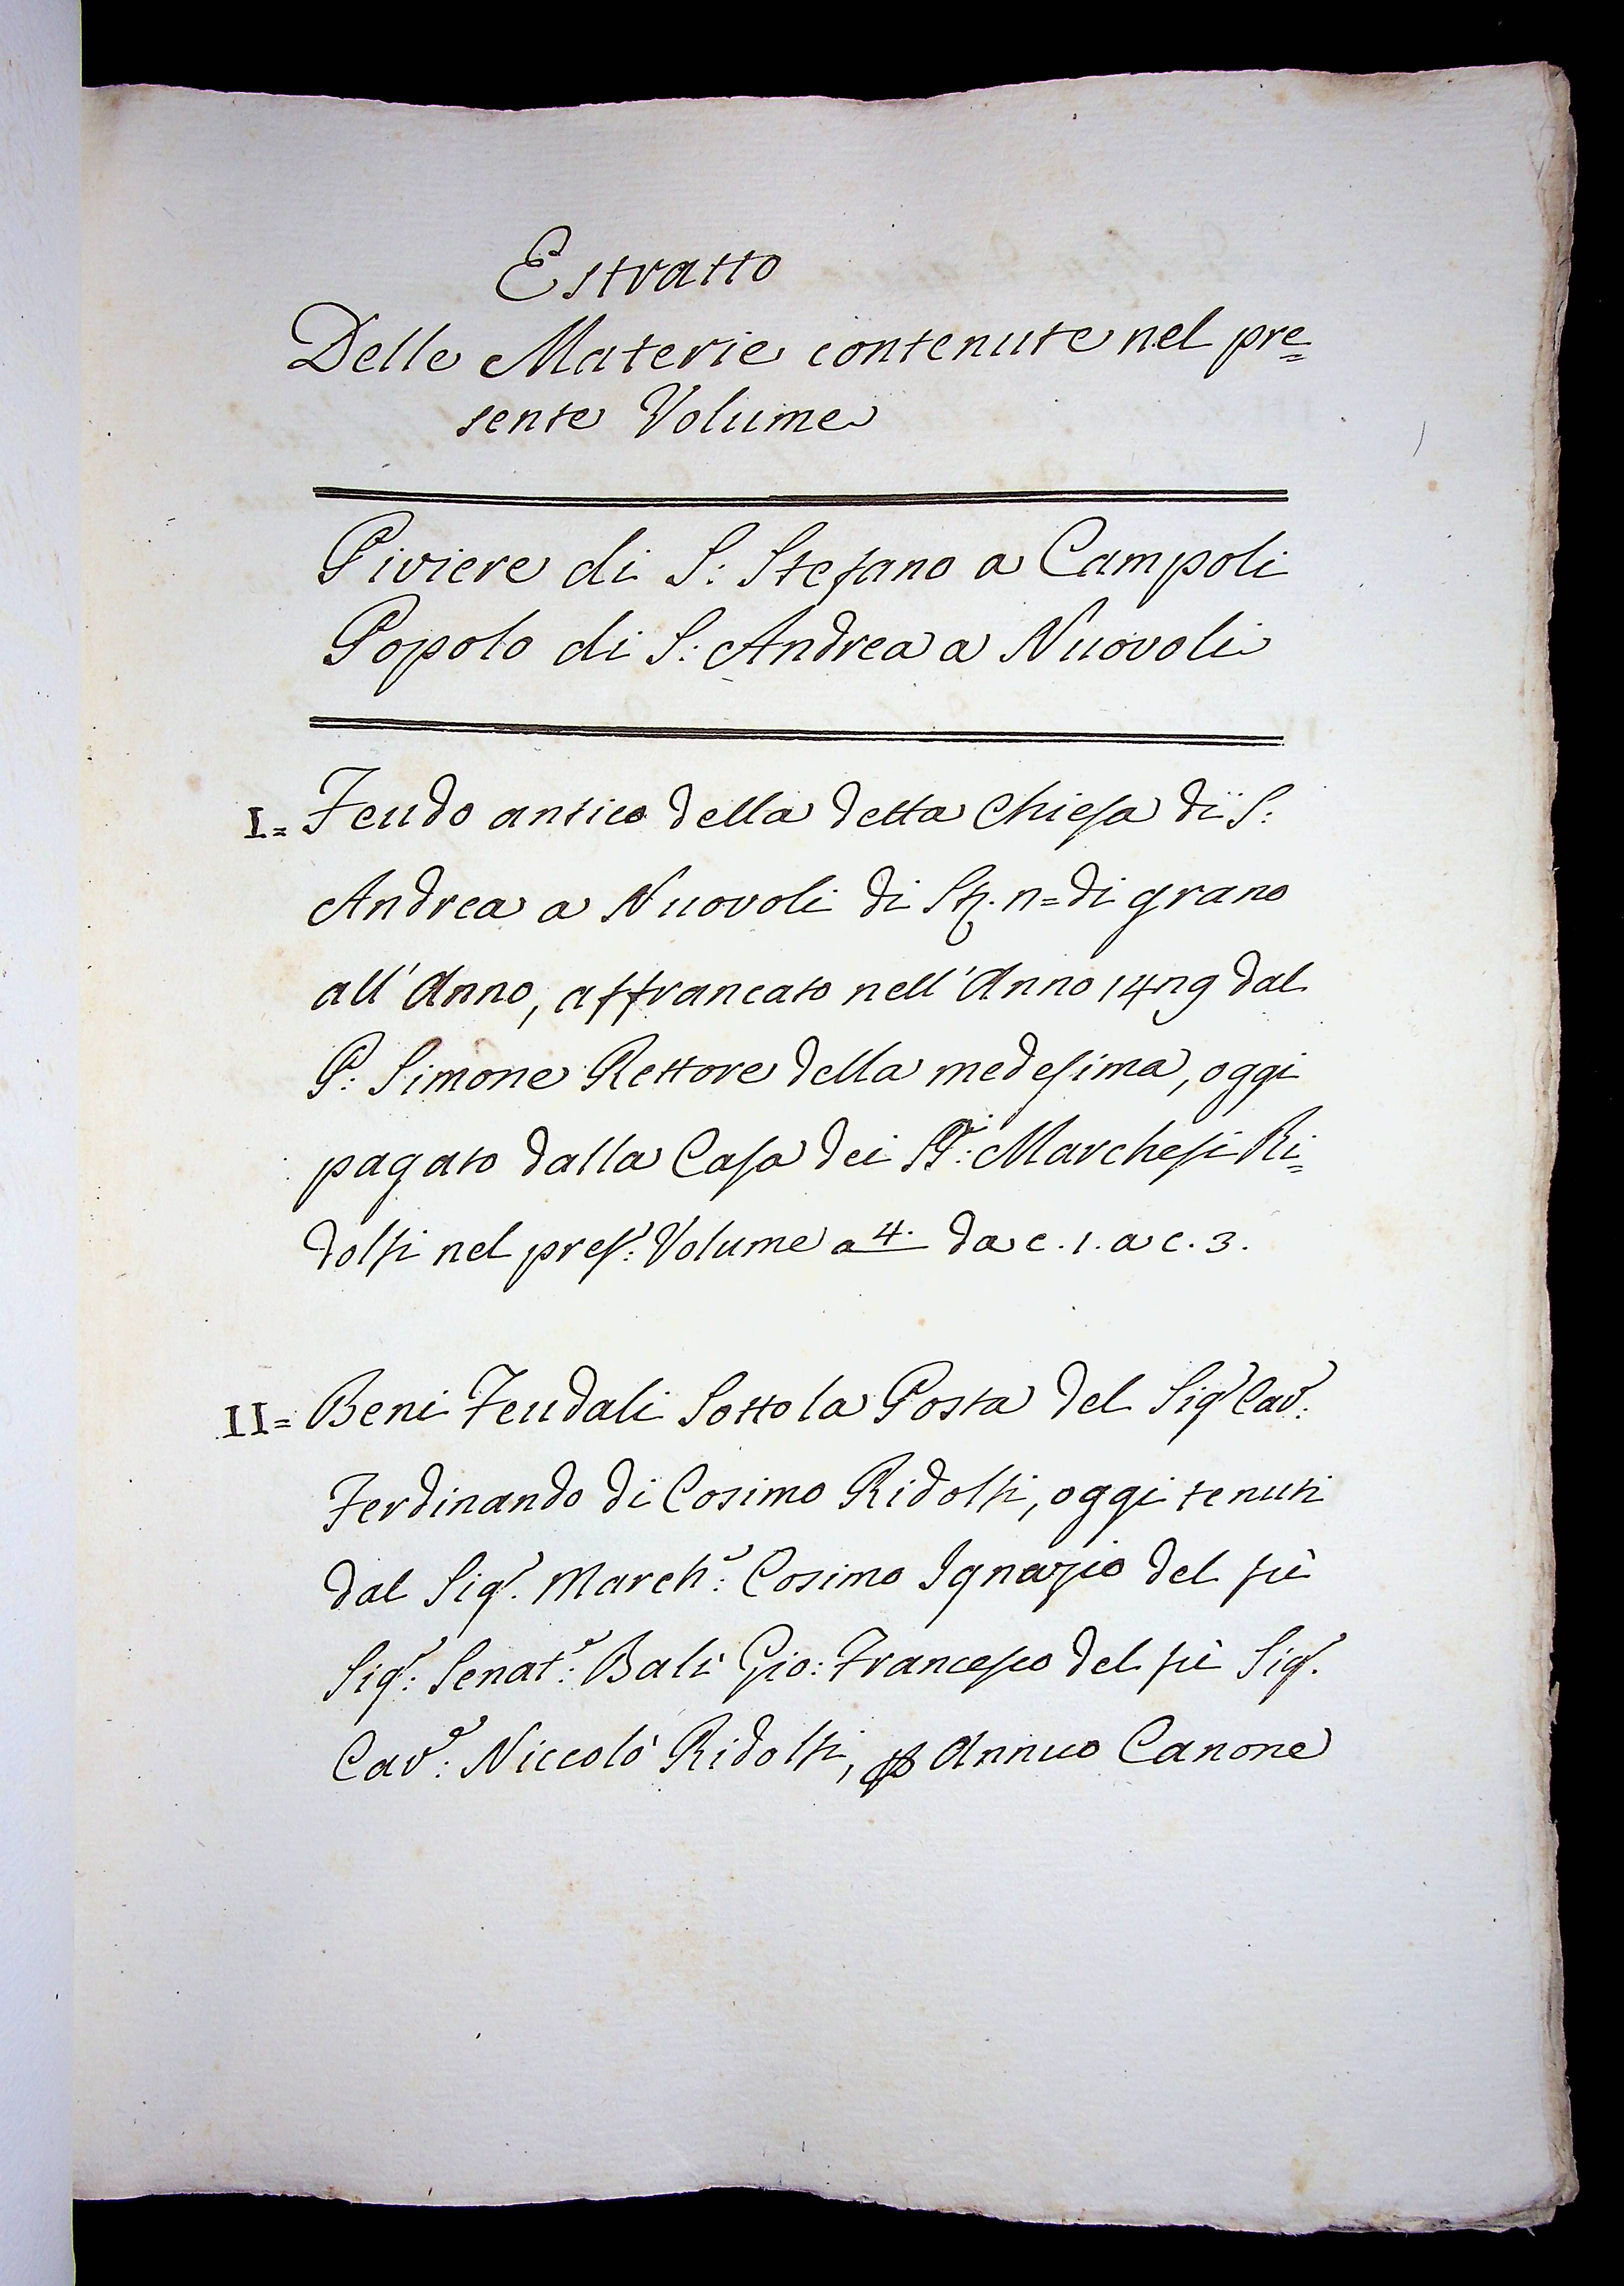 Estratto
Delle Materie contenute nel pre=
sente Volume
Piviere di S: Stefano a Campoli
Popolo di S: Andrea a Nuovoli
I= Feudo antico della detta Chiesa di S:
Andrea a Nuovoli di di grano
all'Anno, affrancato nell'Anno dal
P: Simone Rettore della medesima, oggi
pagato dalla Casa dei SS.ri: Marchesi Ri=
dolfi nel pres:e Volume a 4. da c. 1. a c. 3.
II= Beni Feudali Sotto la Posta del Sig.r Cav:e
Ferdinando di Cosimo Ridolfi, oggi tenuti
dal Sig.r March:e Cosimo Ignazio del fù
Sig.r: Senat:e Balì Gio: Francesco del fù Sig.r
Cav:e Niccolò Ridolfi, p Annuo Canone